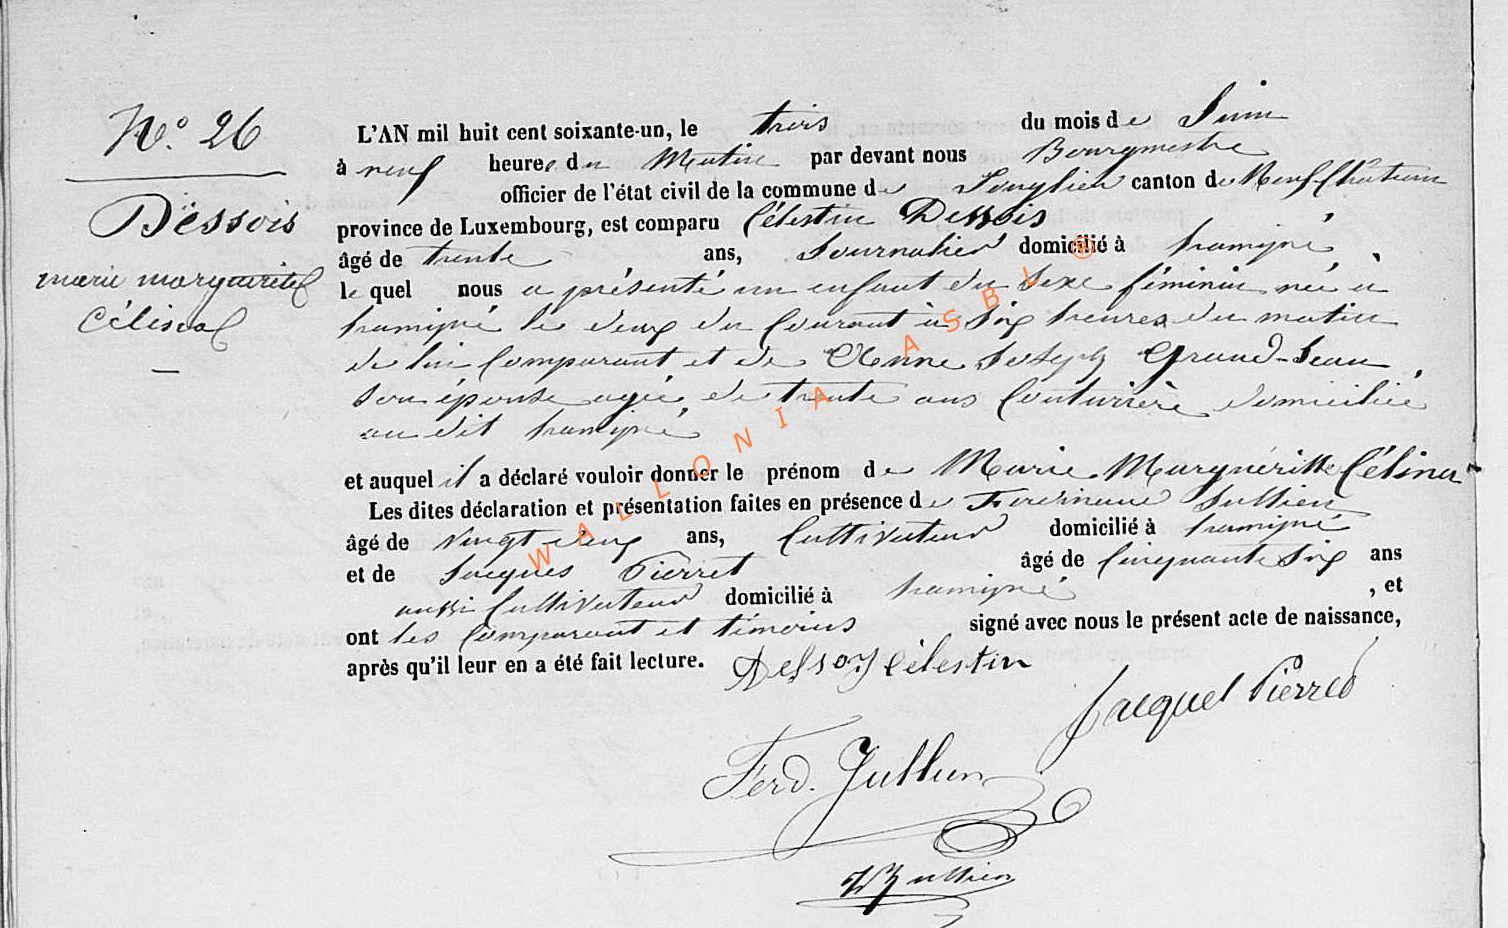 N.° 26
Dëssois
marie marguerite
Célina
L'AN mil huit cent soixante-un, le trois du mois de Juin
à neuf heures du Matin par devant nous Bourgmestre
officier de l'état civil de la commune de Longlier canton de Neufchateau
province de Luxembourg, est comparu Célestin Dessois
âgé de trente ans, Journalier domicilié à hamipré
le quel nous a présenté un enfant du sexe féminin née à
hamipré le deux du Courant à six heures du matin
de lui Comparant et de Anne Joseph Grand-Jean
son épouse agée de trente ans Couturière domiciliée
au dit hamipré
et auquel il a déclaré vouloir donner le prénom de Marie Marguéritte Célina
Les dites déclaration et présentation faites en présence de Ferdinand Jullien
âgé de vingt deux ans, Cultivateur domicilié à hamipré
et de Jacques Pierret âgé de Cinquante six ans
aussi Cultivateur domicilié à hamipré , et
ont les Comparant et témoins signé avec nous le présent acte de naissance,
après qu'il leur en a été fait lecture. Dessoy Célestin
Jacque Pierret
Ferd. Jullien
Jullien
WALLONIA ASBL ®